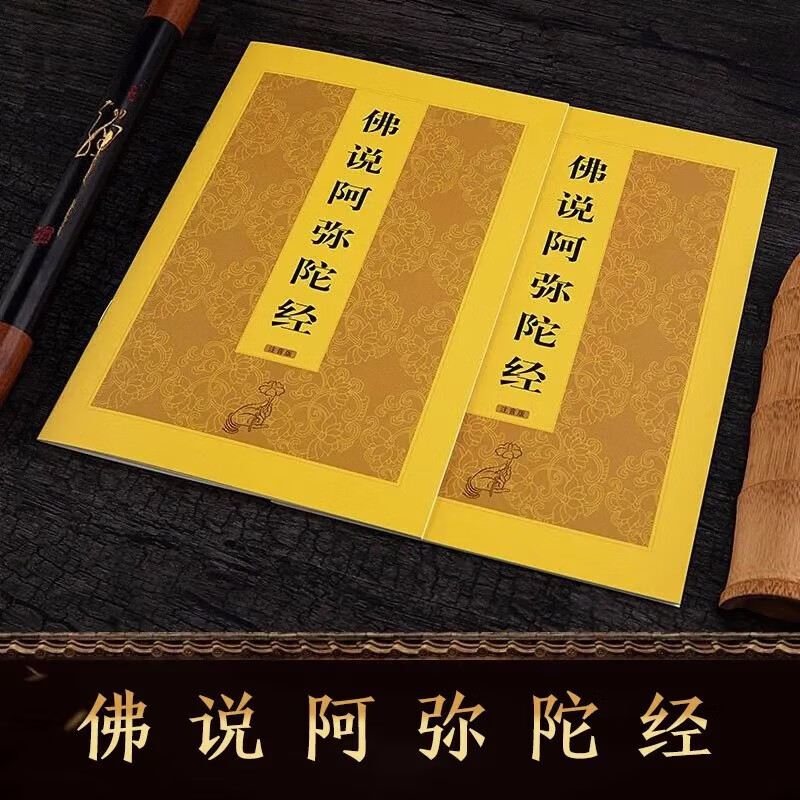 佛说阿弥陀经
注音版
佛说阿弥陀经
注音版
佛说阿弥陀经